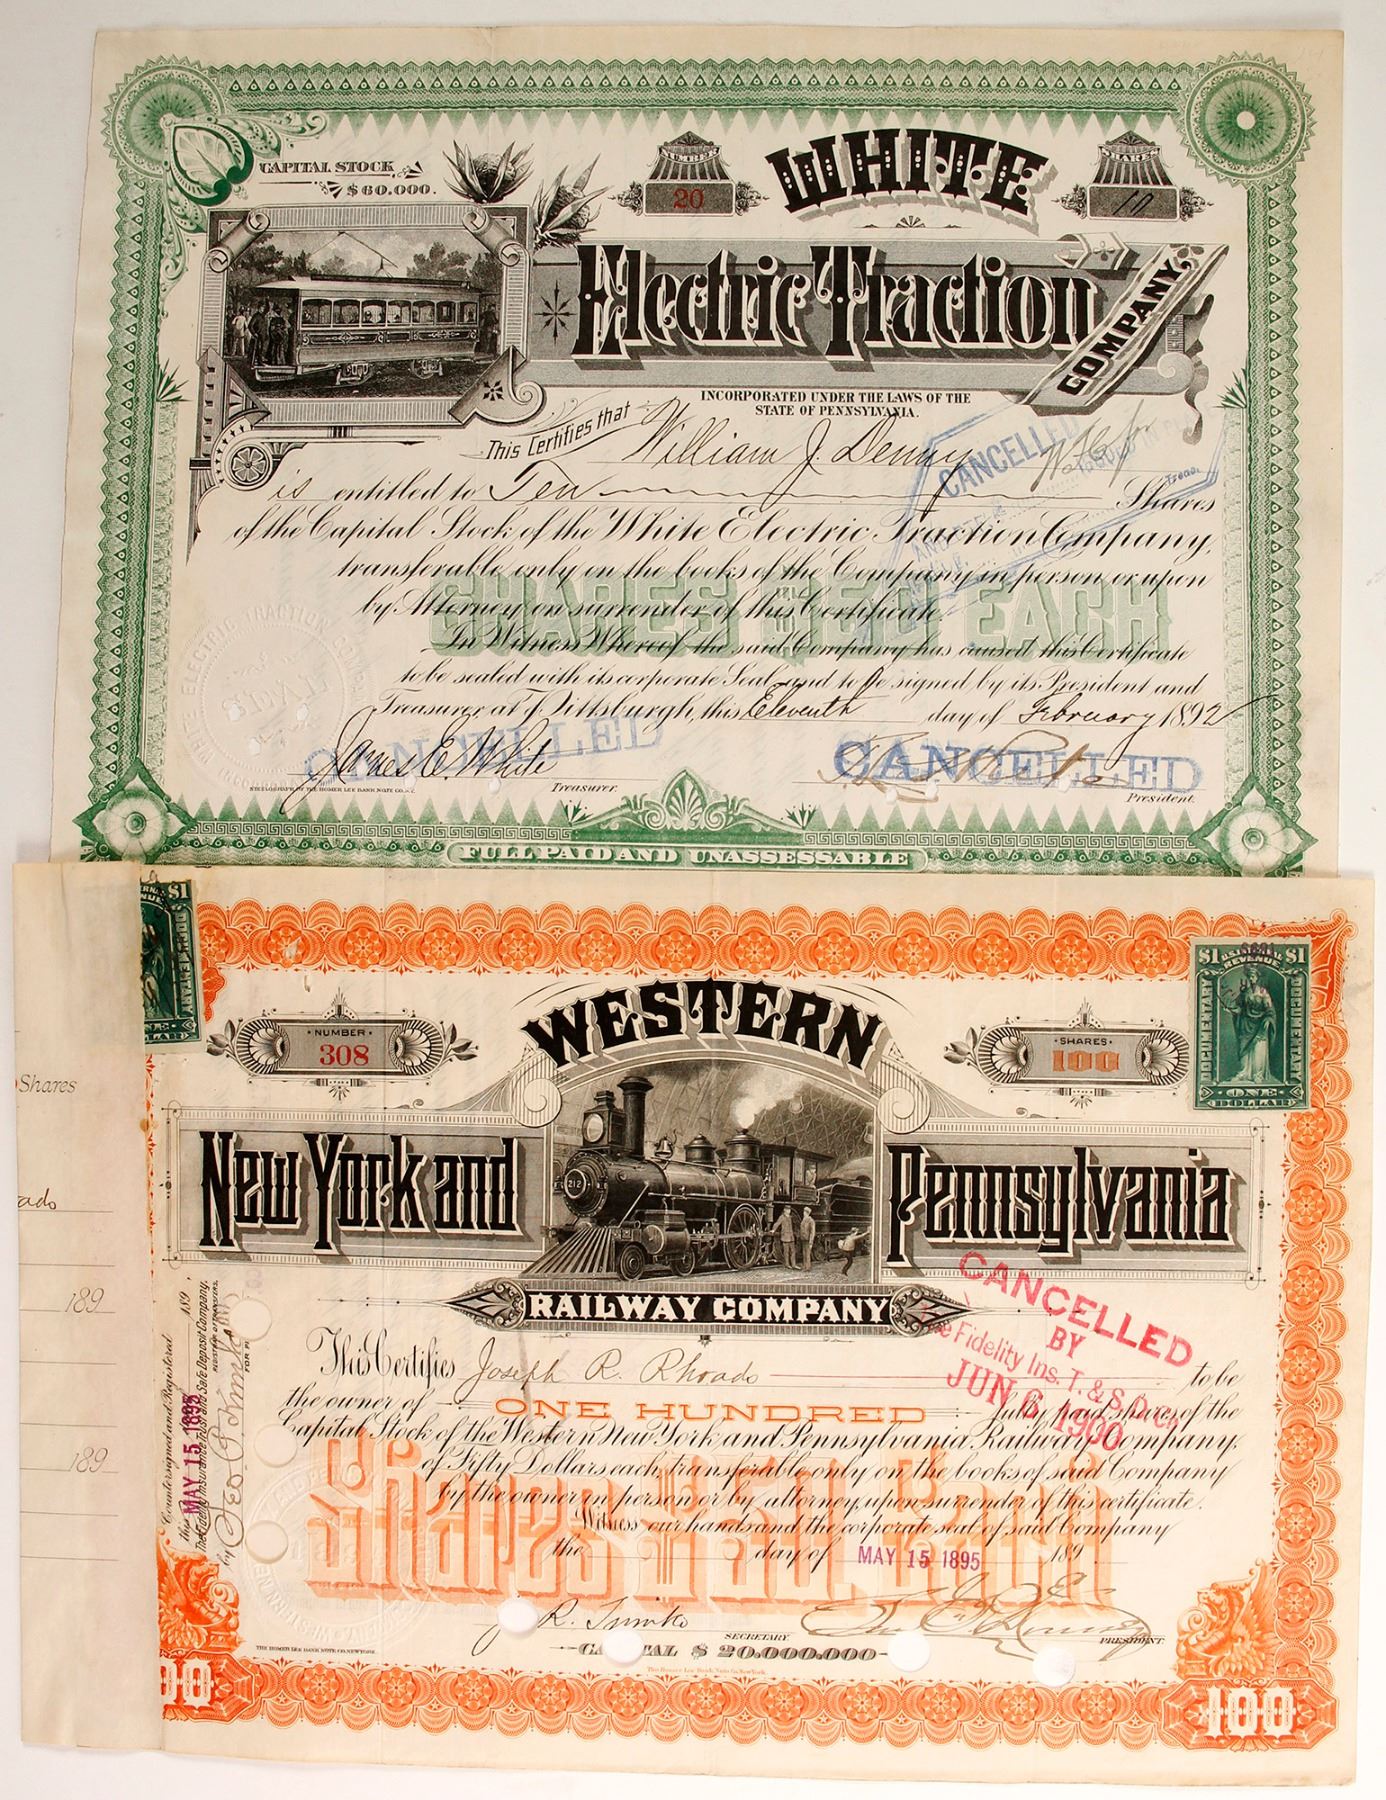 CAPITAL STOCK
$60.000.
NUMBER
20
WHITE
SHARES
10
Electric Traction
COMPANY
INCORPORATED UNDER THE LAWS OF THE
STATE OF PENNSYLVANIA.
This Certifies that William J. Denny
Treas.
CANCELLED
is entitled to Ten Shares
of the Capital Stock of the White Electric Traction Company,
transferable only on the books of the Company in person or upon
by Attorney on surrender of this Certificate.
SHARES $50 EACH
In Witness Whereof the said Company has caused this Certificate
to be sealed with its corporate Seal and to be signed by its President and
Treasurer at Pittsburgh, this Eleventh day of February 1892
WHITE ELECTRIC TRACTION COMPANY
CANCELLED
CANCELLED
James C. White
Treasurer.
President.
STEELOGRAPH BY THE HOMER LEE BANK NOTE CO. N.Y.
FULL PAID AND UNASSESSABLE
$1
DOCUMENTARY
$1 U.S. INTERNAL REVENUE $1
DOCUMENTARY
DOCUMENTARY
ONE
DOLLAR
NUMBER
308
WESTERN
SHARES
100
Shares
New York and
212
Pennsylvania
RAILWAY COMPANY
ado
189
189
CANCELLED
BY
The Fidelity Ins. T. & S. D. Co.
JUN 6 1900
This Certifies Joseph R. Rhoads to be
the owner of ONE HUNDRED fully paid shares of the
Capital Stock of the Western New York and Pennsylvania Railway Company,
of Fifty Dollars each, transferable only on the books of said Company
by the owner in person or by attorney, upon surrender of this certificate.
Witness our hands and the corporate seal of said Company
the day of MAY 15 1895 189
Shares $50. Each
Countersigned and Registered
this MAY 15 1895 189,
The Fidelity Insurance Trust and Safe Deposit Company,
REGISTRAR OF TRANSFERS.
by
SECRETARY.
PRESIDENT.
CAPITAL $20.000.000
THE HOMER LEE BANK NOTE CO. NEW YORK.
The Homer Lee Bank Note Co. New York.
00
100